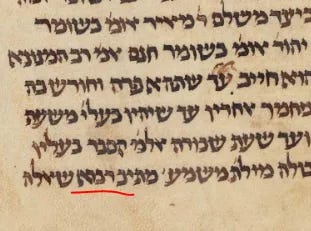 כיצד משלם ר' מאיר אומ' כשומר
יהוד' אומ' כשומר חנם אמ' רב המנונא
הוא חייב עד שתהא פרה וחורש בה
מחמר אחריו עד שיהיו בעלי' משעה
ועד שעת שבורה אלמ' קסבר בעליו
כולה מילת' משמע' מתיב רבא שאלה